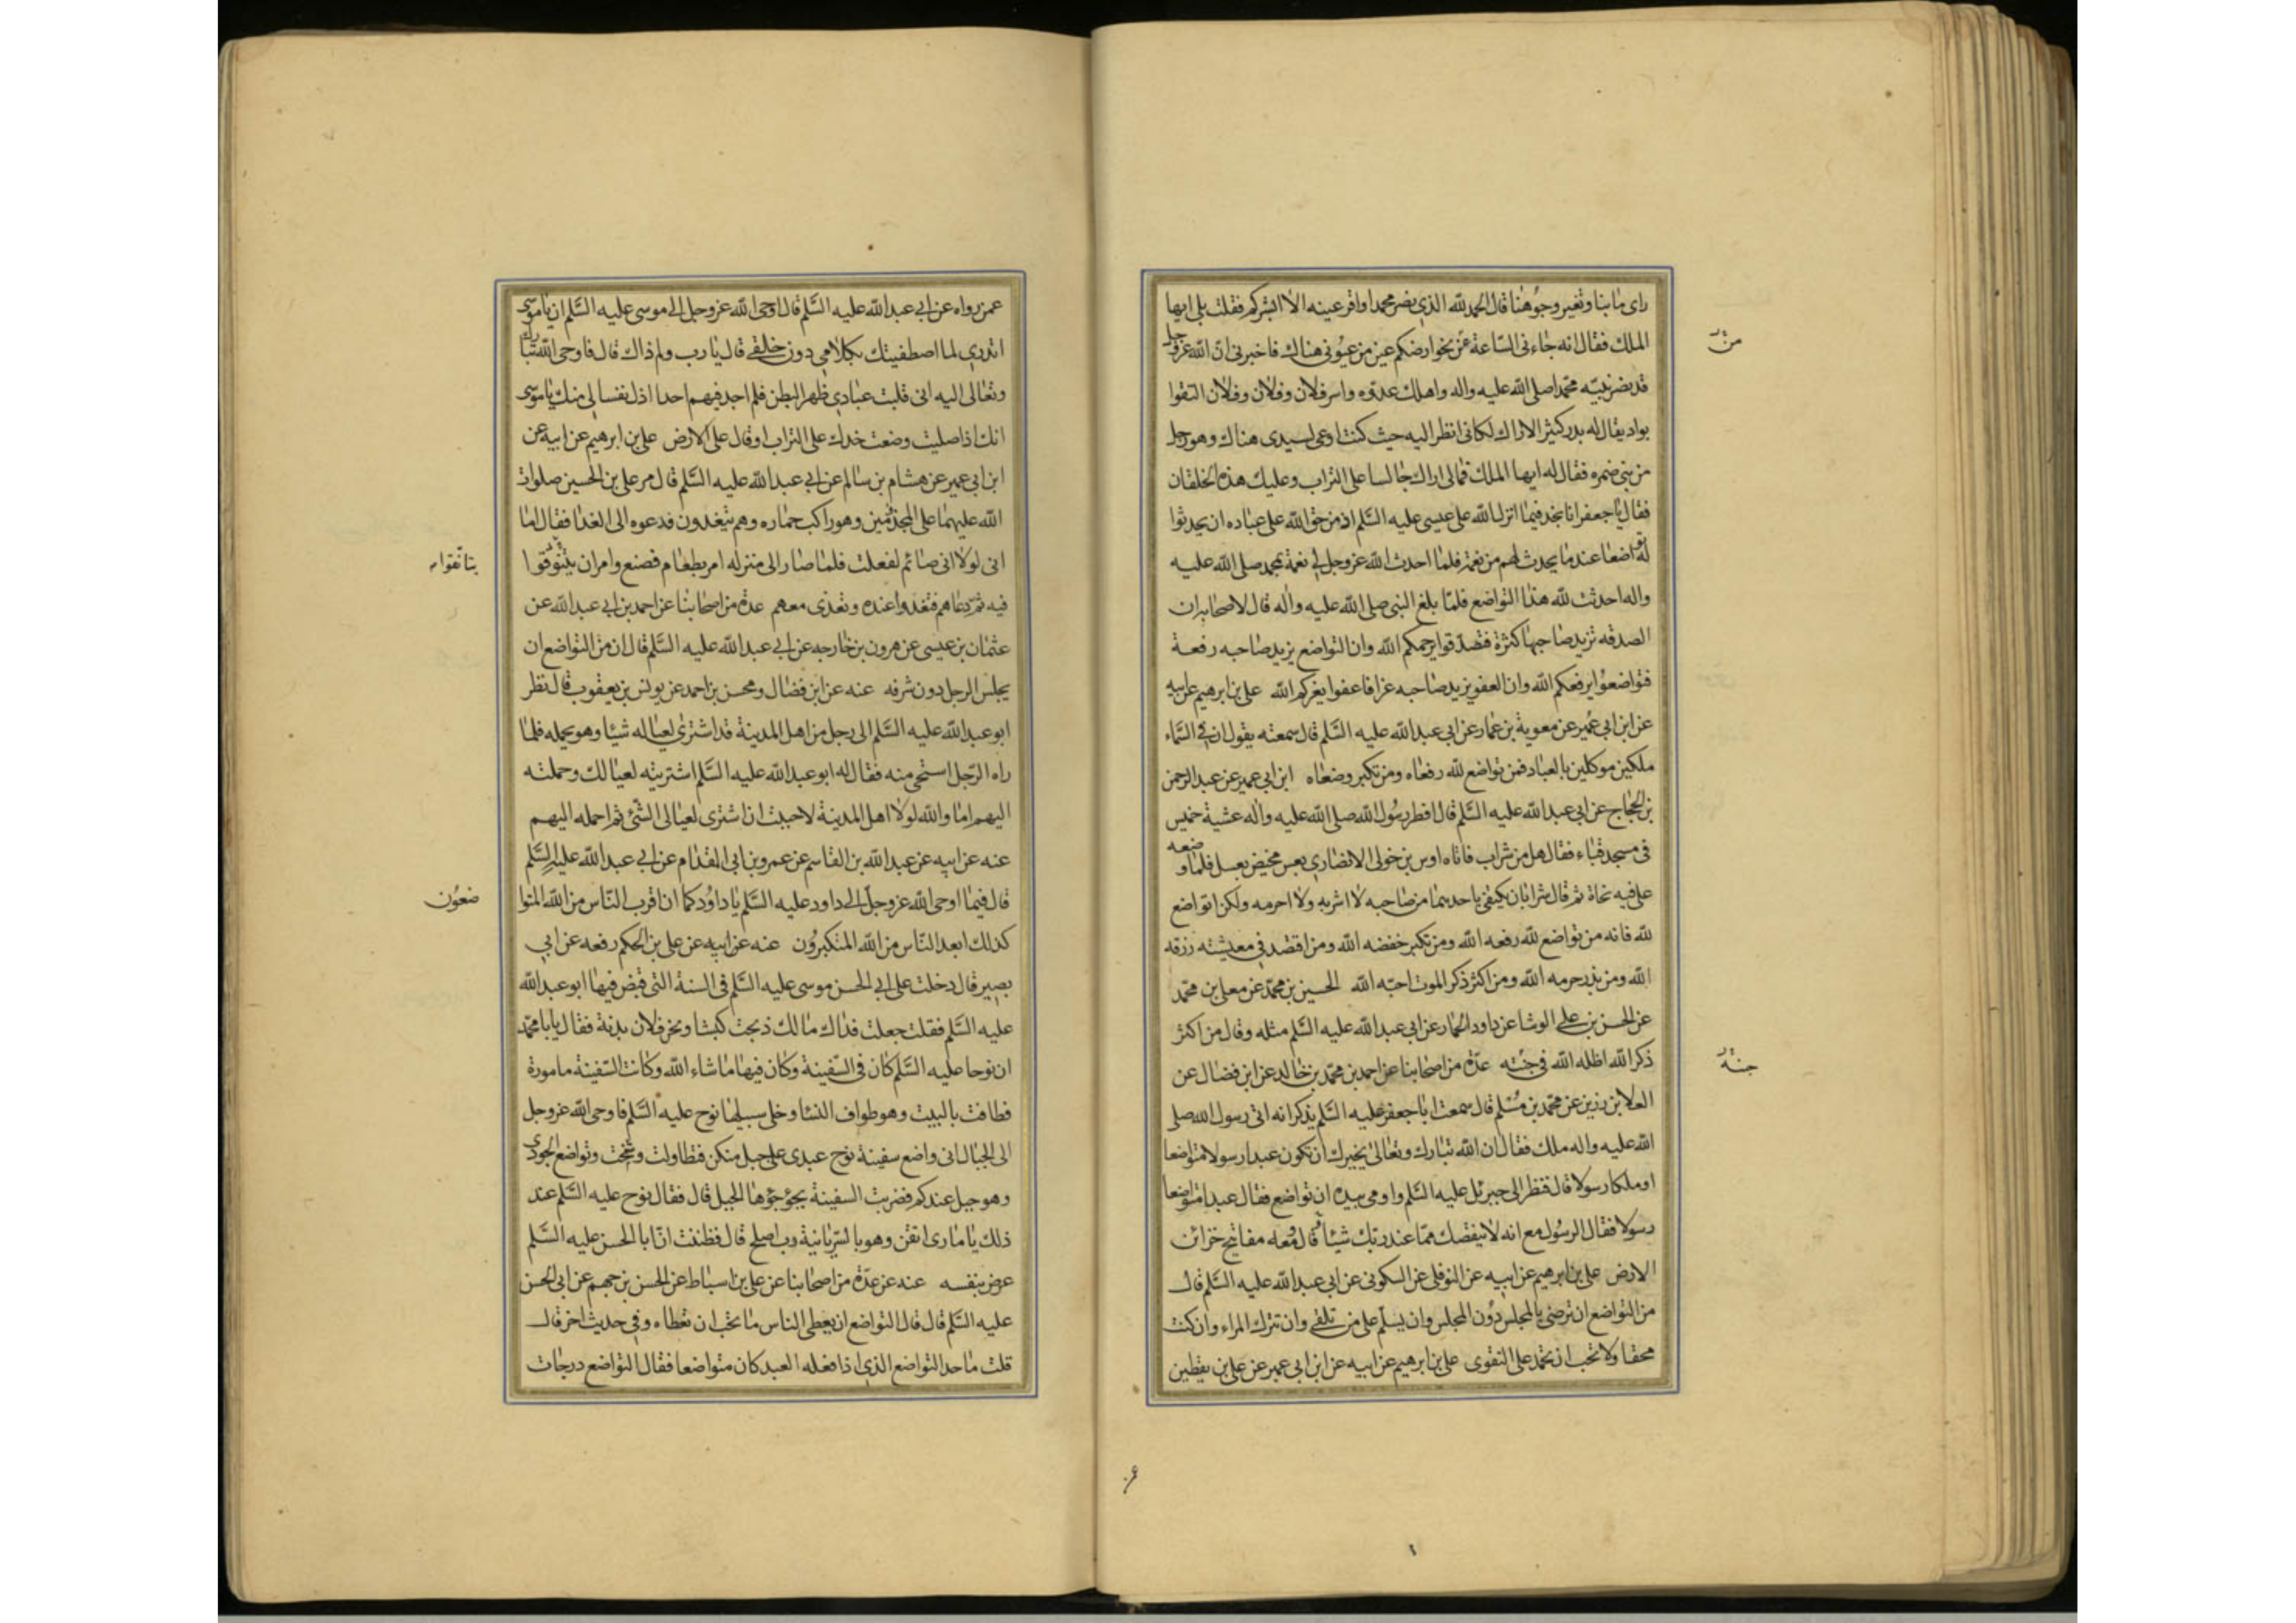 راى ما بنا وتغير وجوهنا قال الحمد لله الذي نصر محمدا واقر عينه الا ابشركم فقلت بلى ايها
الملك فقال انه جاءنى الساعة من نحو ارضكم عين من عيونى هناك فاخبرنى ان الله عزوجل
من
قد نصر نبيه محمدا صلى الله عليه واله واهلك عدوه واسر فلان وفلان وفلان التقوا
بواد يقال له بدر كثير الاراك لكانى انظر اليه حيث كنت اوعى لسيدى هناك وهو رجل
من بنى ضمره فقال له ايها الملك فمالى اراك جالسا على التراب وعليك هذه الخلقان
فقال يا جعفر انا نجد فيما انزل الله على عيسى عليه السلم اذ من حق الله على عباده ان يحدثوا
له تواضعا عند ما يحدث لهم من نعمة فلما احدث الله عزوجل لى نعمة بمحمد صلى الله عليه
واله احدثت لله هذا التواضع فلما بلغ النبى صلى الله عليه واله قال لاصحابه ان
الصدقه تزيد صاحبها كثرة فتصدقوا يرحمكم الله وان التواضع يزيد صاحبه رفعة
فتواضعوا يرفعكم الله وان العفو يزيد صاحبه عزا فاعفوا يعزكم الله على بن ابرهيم عن ابيه
عن ابن ابي عمير عن معوية بن عمار عن ابى عبد الله عليه السلم قال سمعته يقول ان فى السماء
ملكين موكلين بالعباد فمن تواضع لله رفعاه ومن تكبر وضعاه ابن ابى عمير عن عبد الرحمن
بن الحجاج عن ابى عبد الله عليه السلم قال افطر رسول الله صلى الله عليه واله عشية خميس
فى مسجد قباء فقال هل من شراب فاتاه اوس بن خولى الانصارى بعس مخيض بعسل فلما وضعه
على فيه نحاه ثم قال شرابان يكتفى باحدهما من صاحبه لا اشربه ولا احرمه ولكن اتواضع
لله فانه من تواضع لله رفعه الله ومن تكبر خفضه الله ومن اقتصد فى معيشته رزقه
الله ومن بذر حرمه الله ومن اكثر ذكر الموت احبه الله الحسين بن محمد عن معلى بن محمد
عن الحسن بن على الوشا عن داود الحمار عن ابى عبد الله عليه السلم مثله وقال من اكثر
ذكر الله اظله الله فى جنته عدة من اصحابنا عن احمد بن محمد بن خالد عن ابن فضال عن
جنته
العلا بن رزين عن محمد بن مسلم قال سمعت ابا جعفر عليه السلم يذكر انه اتى رسول الله صلى
الله عليه واله ملك فقال ان الله تبارك وتعالى يخيرك ان تكون عبدا رسولا متواضعا
او ملكا رسولا قال فنظر الى جبرئل عليه السلم واومى بيده ان تواضع فقال عبدا متواضعا
رسولا فقال الرسول مع انه لا ينقصك مما عند ربك شيئا قال ومعه مفاتيح خزائن
الارض على بن ابرهيم عن ابيه عن النوفلى عن السكونى عن ابى عبد الله عليه السلم قال
من التواضع ان ترضى بالمجلس دون المجلس وان يسلم على من تلقى وان تترك المراء وان كنت
محقا ولا تحب ان تحمد على التقوى على بن ابرهيم عن ابيه عن ابن ابى عمير عن على بن يقطين
عمن رواه عن ابى عبد الله عليه السلم قال اوحى الله عزوجل الى موسى عليه السلم ان يا موسى
اتدرى لما اصطفيتك بكلامى دون خلقى قال يا رب ولم ذاك قال فاوحى الله تبارك
وتعالى اليه انى قلبت عبادى ظهر البطن فلم اجد فيهم احدا اذل نفسا لى منك يا موسى
انك اذا صليت وضعت خدك على التراب او قال على الارض على بن ابرهيم عن ابيه عن
ابن ابى عمير عن هشام بن سالم عن ابى عبد الله عليه السلم قال مر على بن الحسين صلوات
الله عليهما على المجذمين وهو راكب حماره وهم يتغدون فدعوه الى الغدا فقال اما
انى لولا انى صائم لفعلت فلما صار الى منزله امر بطعام فصنع وامر ان يتنوقوا
يتانقوا
فيه ثم دعاهم فتغدوا عنده وتغدى معهم عدة من اصحابنا عن احمد بن ابى عبد الله عن
عثمان بن عيسى عن هرون بن خارجه عن ابى عبد الله عليه السلم قال ان من التواضع ان
يجلس الرجل دون شرفه عنه عن ابن فضال ومحسن بن احمد عن يونس بن يعقوب قال نظر
ابو عبد الله عليه السلم الى رجل من اهل المدينة قد اشترى لعياله شيئا وهو يحمله فلما
راه الرجل استحى منه فقال له ابو عبد الله عليه السلم اشتريته لعيالك وحملته
اليهم اما والله لولا اهل المدينة لاحببت ان اشترى لعيالى الشئ ثم احمله اليهم
عنه عن ابيه عن عبد الله بن القاسم عن عمرو بن ابى المقدام عن ابى عبد الله عليه السلم
قال فيما اوحى الله عزوجل الى داود عليه السلم يا داود كما ان اقرب الناس من الله المتوا
ضعون
كذلك ابعد الناس من الله المتكبرون عنه عن ابيه عن على بن الحكم رفعه عن ابى
بصير قال دخلت على ابى الحسن موسى عليه السلم فى السنة التى قبض فيها ابو عبد الله
عليه السلم فقلت جعلت فداك مالك ذبحت كبشا ونحر فلان بدنة فقال يا با محمد
ان نوحا عليه السلم كان فى السفينة وكان فيها ما شاء الله وكانت السفينة مامورة
فطافت بالبيت وهو طواف النسا وخلى سبيلها نوح عليه السلم فاوحى الله عزوجل
الى الجبال انى واضع سفينة نوح عبدى على جبل منكن فتطاولت وشمخت وتواضع الجودى
وهو جبل عندكم فضربت السفينة بجؤجؤها الجبل قال فقال نوح عليه السلم عند
ذلك يا مارى اتقن وهو بالسريانية رب اصلح قال فظننت ان ابا الحسن عليه السلم
عرض بنفسه عنه عن عدة من اصحابنا عن على بن اسباط عن الحسن بن جهم عن ابى الحسن
عليه السلم قال قال التواضع ان يعطى الناس ما تحب ان تعطاه وفى حديث اخر قال
قلت ما حد التواضع الذى اذا فعله العبد كان متواضعا فقال التواضع درجات